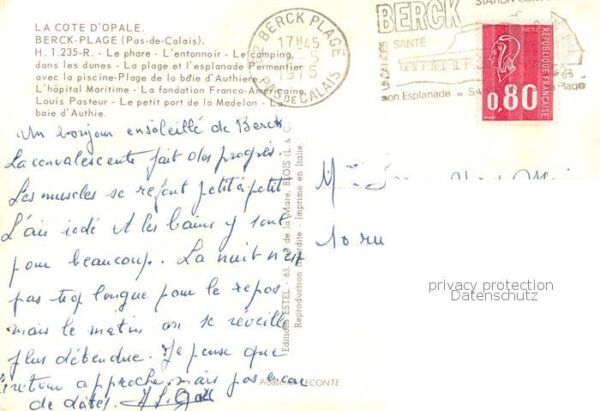 LA COTE D'OPALE.
BERCK-PLAGE (Pas-de-Calais).
H. 1.235-R. - Le phare - L'entonnoir - Le camping
dans les dunes - La plage et l'esplanade Permentier
avec la piscine-Plage de la baie d'Authie
L'hôpital Maritime - La fondation Franco-Américaine
Louis Pasteur - Le petit port de la Madelon - La
baie d'Authie.
BERCK PLAGE
17H45
1975
PAS DE CALAIS
STATION
BERCK
VACANCES SANTÉ
son Esplanade
Plage
POSTES
RÉPUBLIQUE FRANÇAISE
0,80
Un bonjour ensoleillé de Berck
La convalescente fait des progrès.
Les muscles se refont petit à petit
L'air iodé et les bains y sont
pour beaucoup. La nuit n'est
pas trop longue pour le repos
mais le matin on se réveille
plus détendue. Je pense que
le retour approche mais pas encore
de dates.
Editions ESTEL - 63, rue de la Mare, BLOIS (L. & C.)
Reproduction interdite - Imprimé en Italie.
Production LECONTE
10 ru
privacy protection
Datenschutz